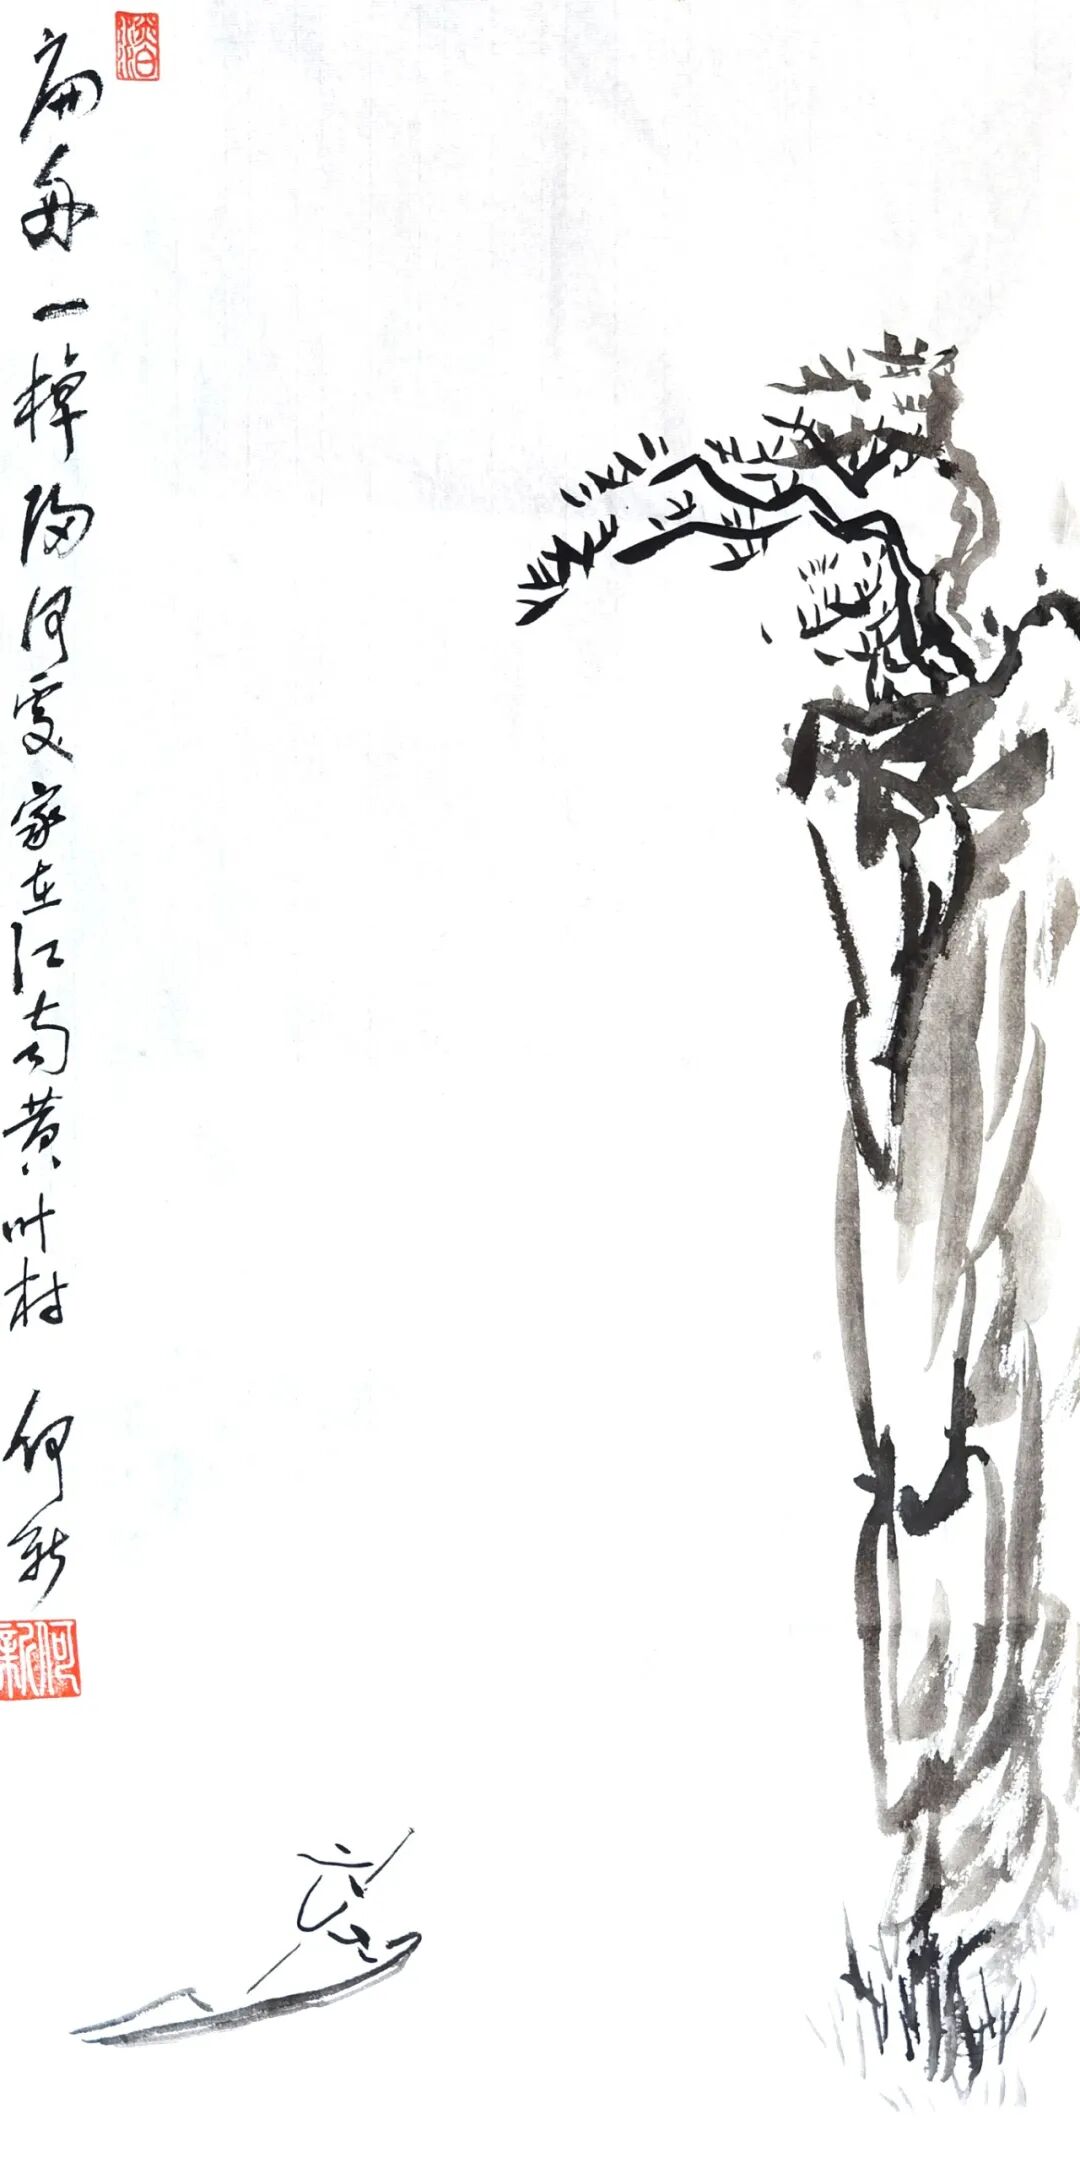 扁舟一棹归何处家在江南黄叶村 何新
何新